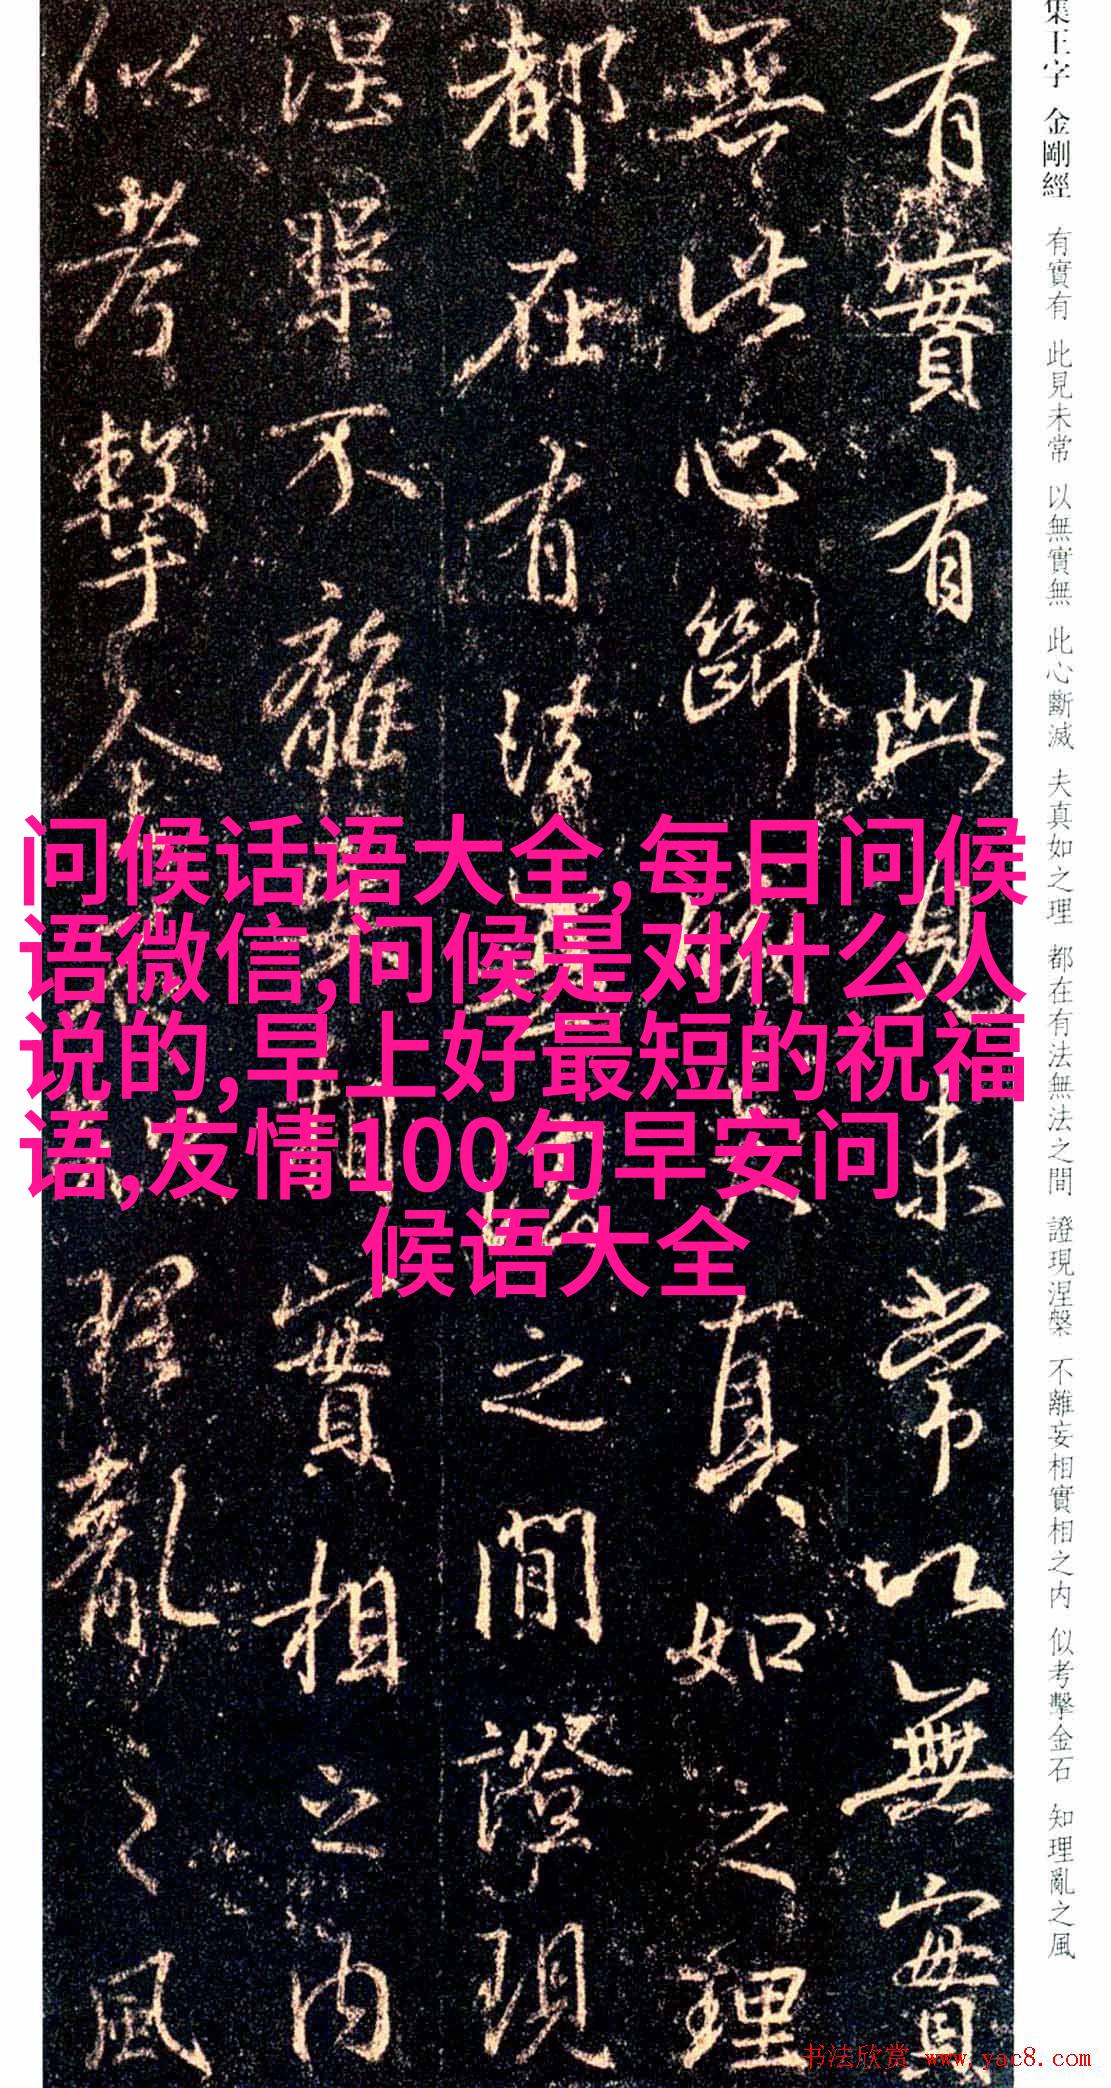 集王字 金剛經 有實有 此見未常 以無實無 此心斷滅 夫真如之理 都在有法無法之間 證現涅槃 不離妄相實相之内 似考擊金石 知理亂之風
有實有此見未常以無實
無此心斷滅夫真如之理
都在有法無法之間證現
涅槃不離妄相實相之内
似考擊金石知理亂之風
问候话语大全,每日问候
语微信,问候是对什么人
说的,早上好最短的祝福
语,友情100句早安问
候语大全
书法欣赏 www.yac8.com